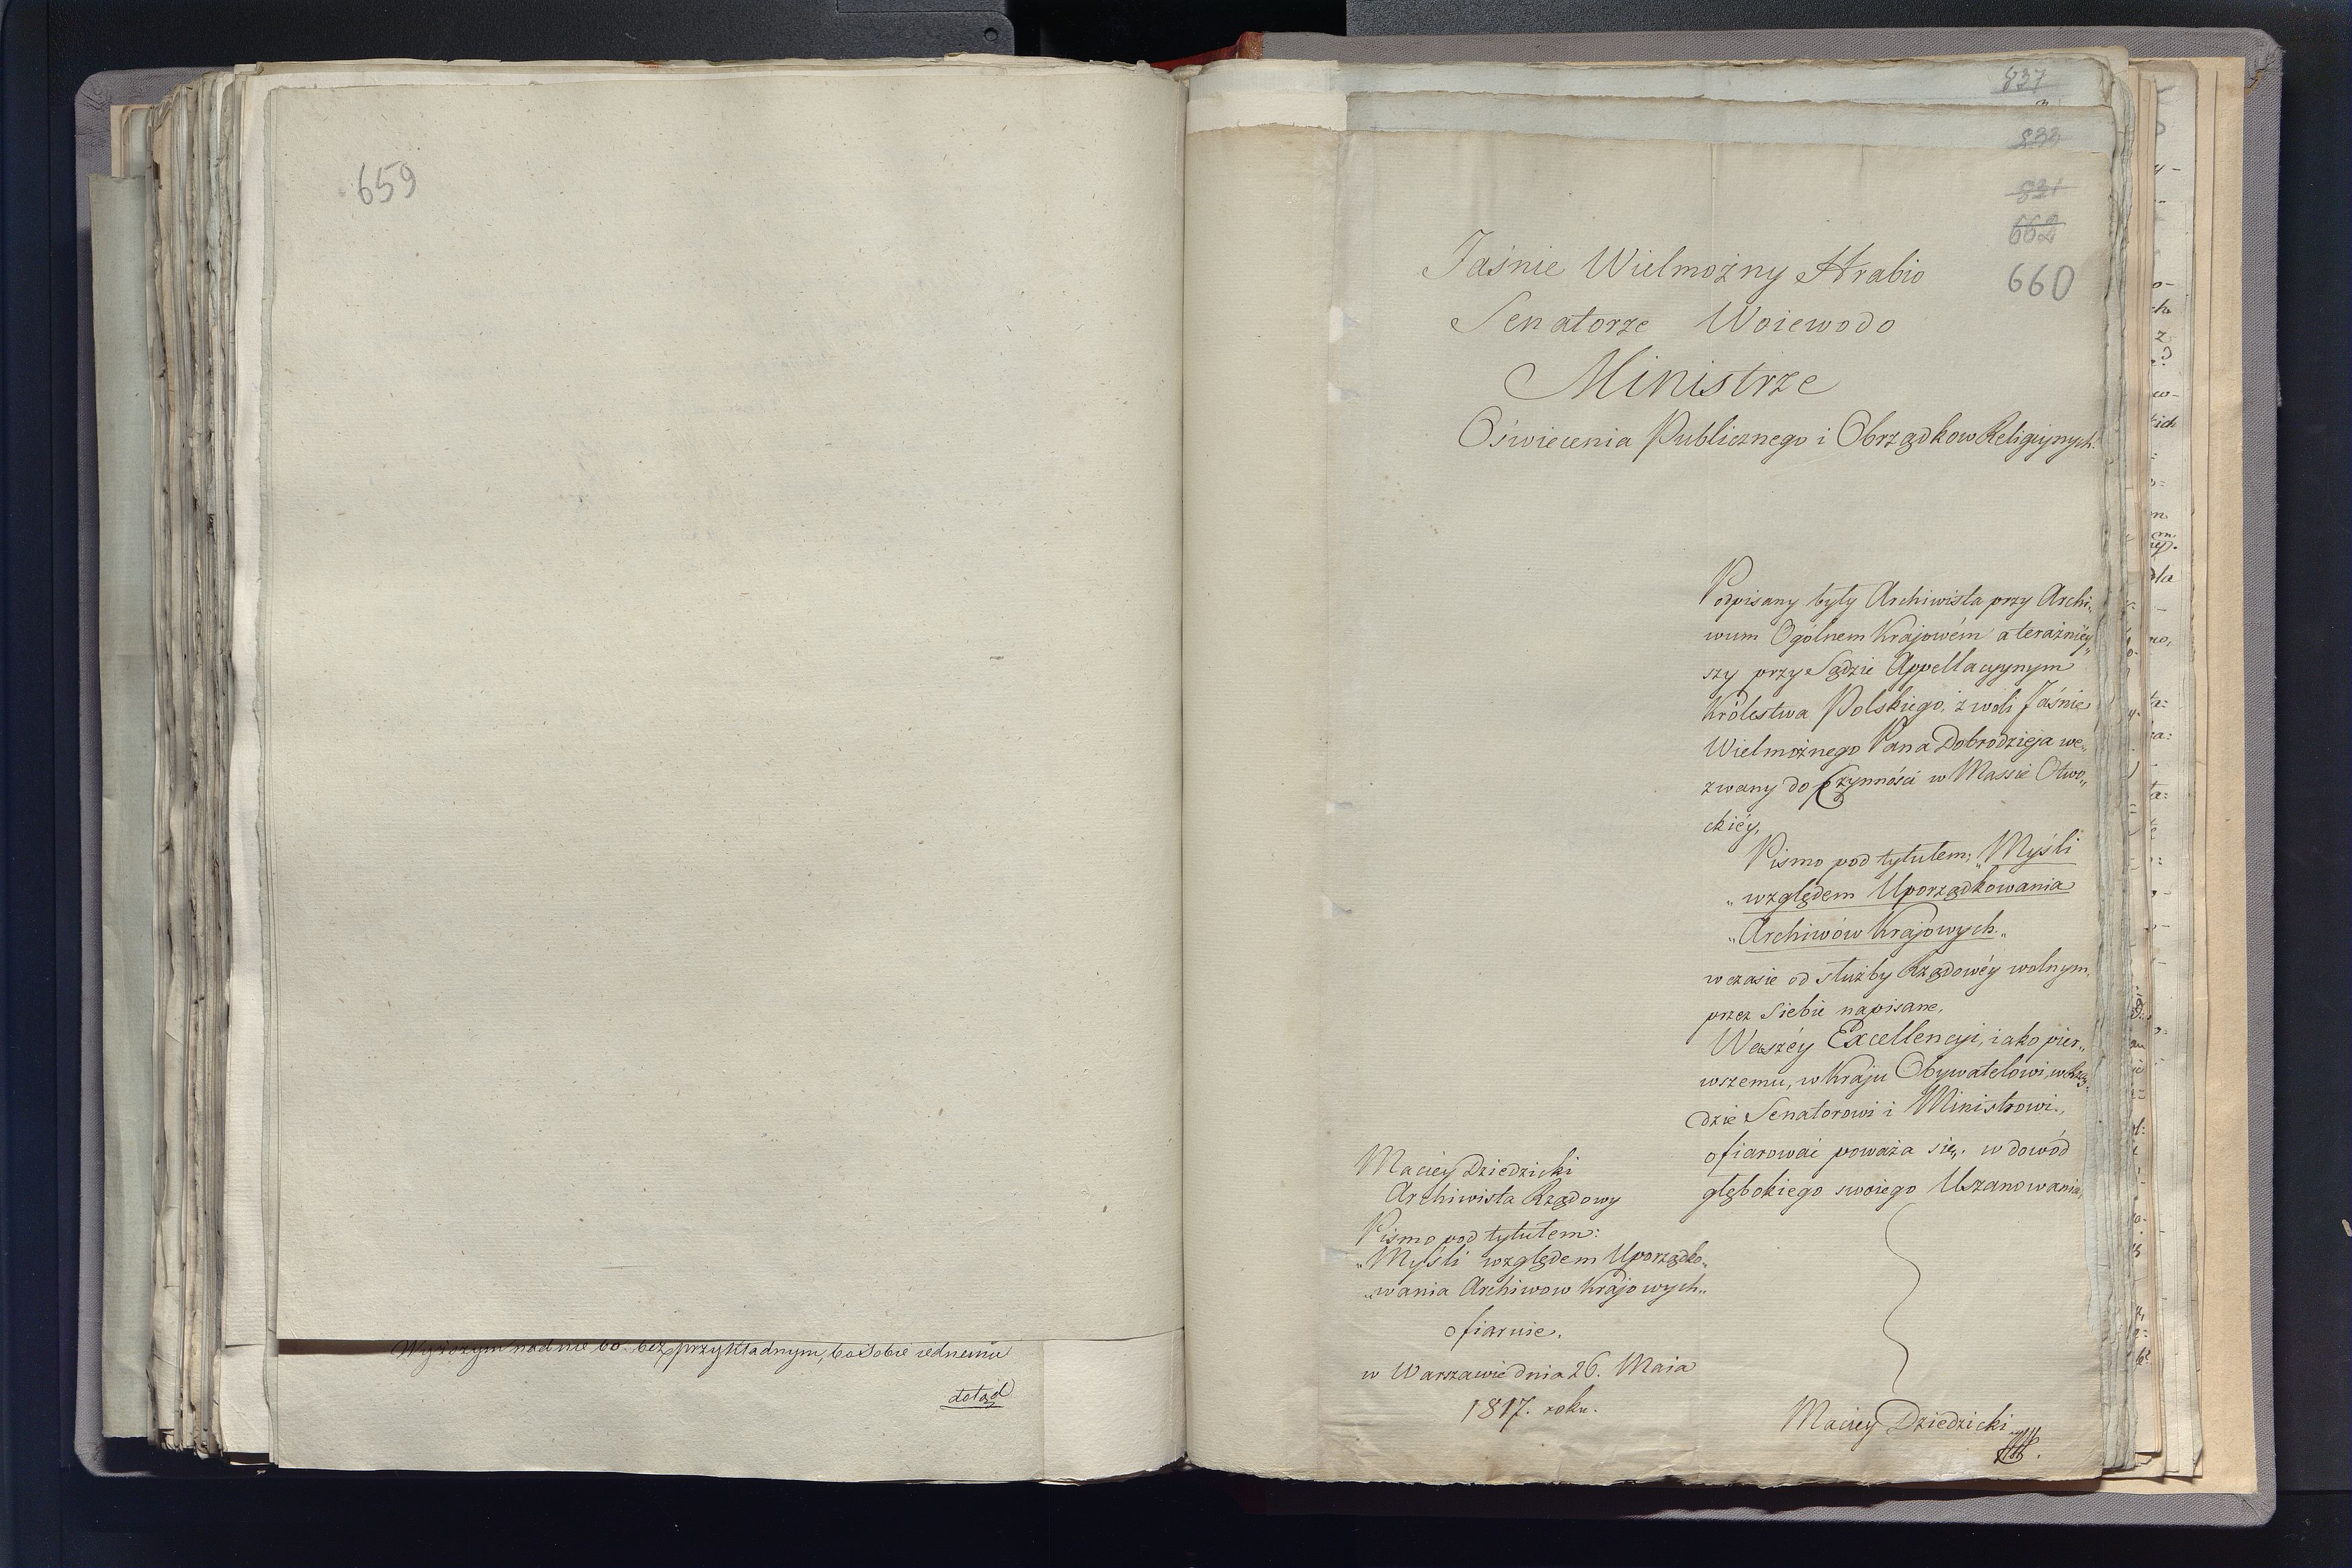 659
bez przykładnym, bo Sobie iednemu
dotąd
837
832
831
662
660
Jaśnie Wielmożny Hrabio
Senatorze Woiewodo
Ministrze
Oświecenia Publicznego i Obrządkow Religiynych.
Podpisany były Archiwista przy Archi„
wum Ogólnem Krajowém a teraźniéy„
szy przy Sądzie Appellacyynym
Królestwa Polskiego, z woli Jaśnie
Wielmożnego Pana Dobrodzieja we„
zwany do Czynności w Massie Otwo„
ckiéy,
Pismo pod tytułem: „Myśli
„względem Uporządkowania
„Archiwów Krajowych„
w czasie od służby Rządowéy wolnym,
przez Siebie napisane,
Waszéy Excellencyi, iako pier„
wszemu, w Kraju Obywatelowi, w Rzą„
dzie Senatorowi i Ministrowi,
ofiarować poważa się, w dowód
głębokiego swoiego Uszanowania,
Maciey Dziedzicki
Maciey Dziedzicki
Archiwista Rządowy
Pismo pod tytułem:
„Myśli względem Uporządko„
„wania Archiwow Krajowych„
ofiaruie.
w Warszawie dnia 26. Maia
1817. roku.